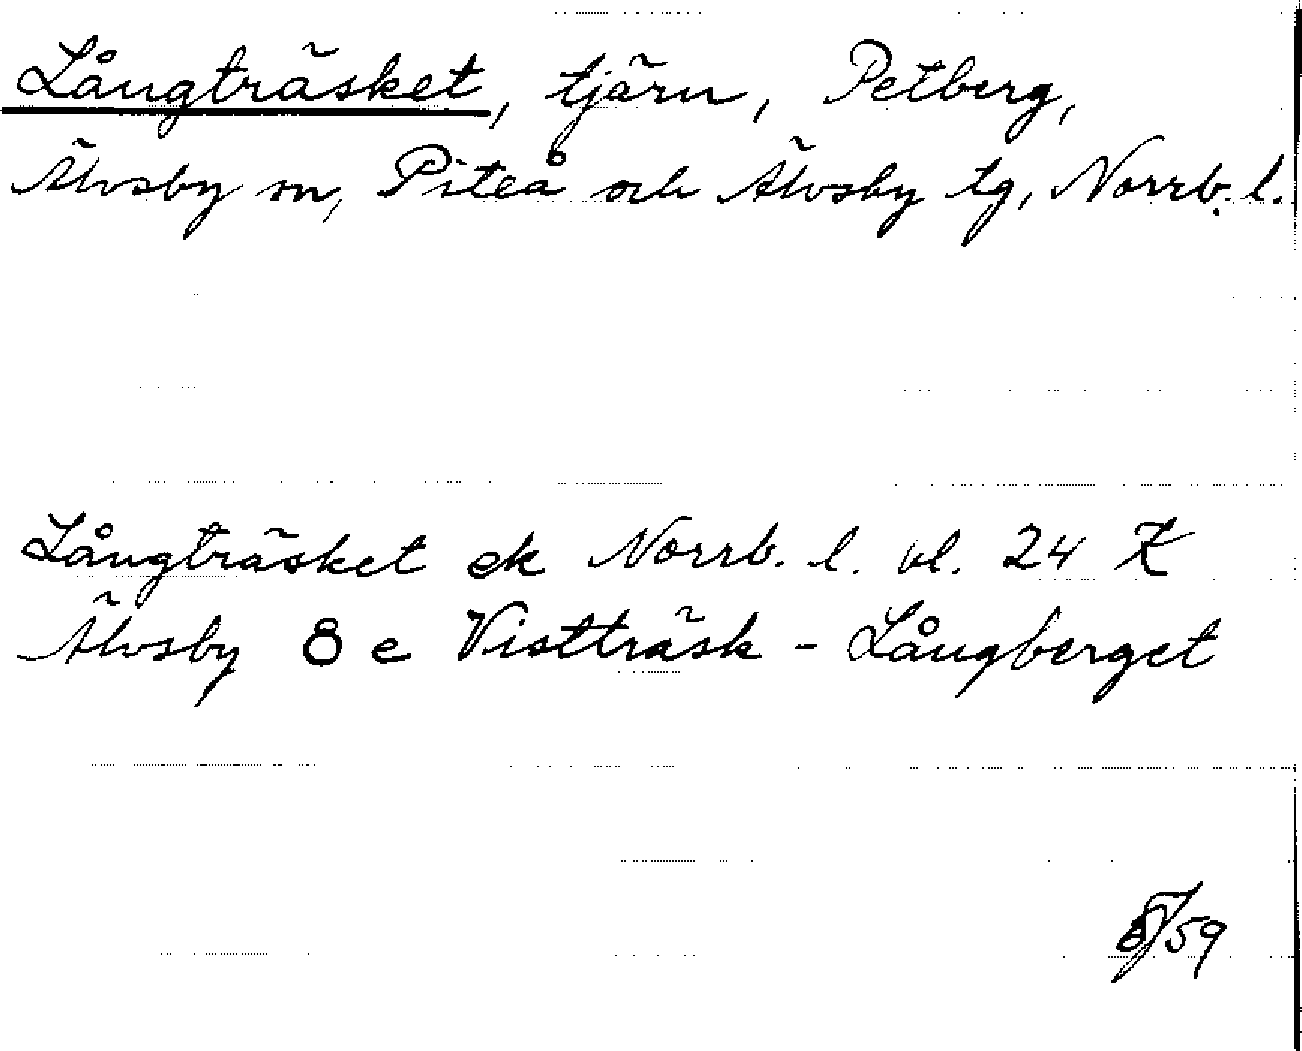 Långträsket, tjärn, Petberg,
Älvsby sn, Piteå och Älvsby tg, Norrb. l.
Långträsket ek Norrb. l. bl. 24 K
Älvsby 8 e Vistträsk - Långberget
/59